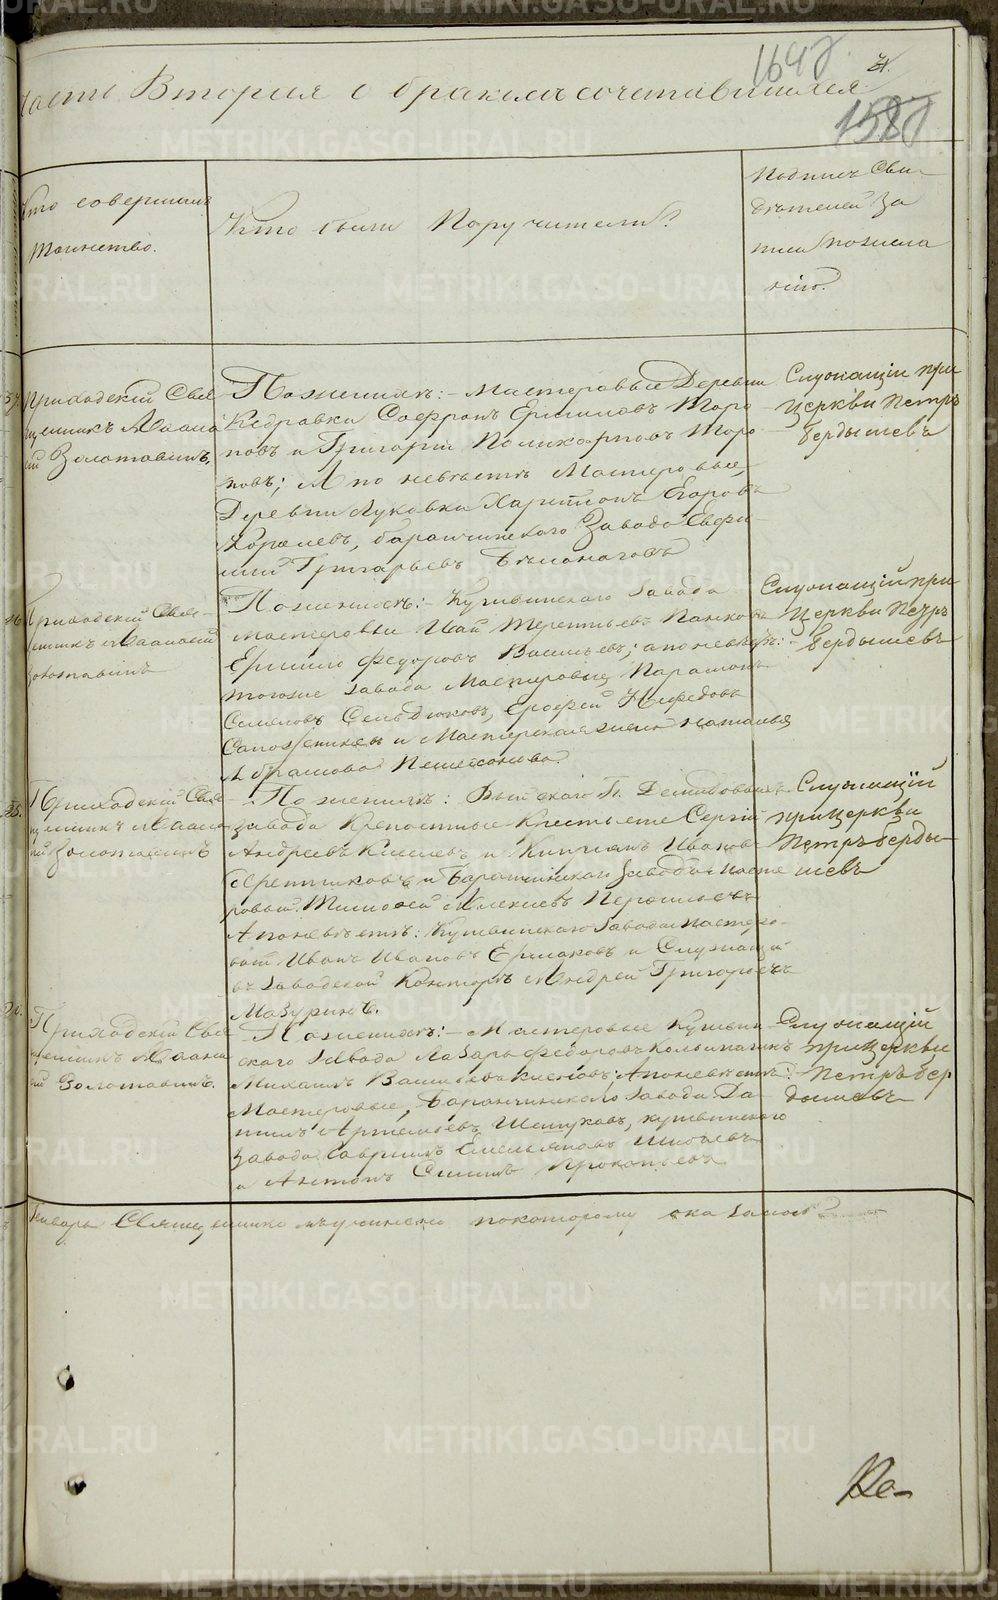 164об.
21.
158об
части Вторая о бракомъ сочетавшихся
Кто совершалъ
таинство.
Кто были Поручители?
Подпись Сви-
дѣтелей за
писи по жела
нію.
Приходскій Свя
щенникъ Аѳанас
ій Золотавинъ.
По женихѣ:- мастеровые Деревни
Кедровки Софронъ Ермиловъ Торо
повъ и Григорій Поликарповъ Торо
повъ; А по невѣстѣ Мастеровые,
Деревни Луковки Харитонъ Егоровъ
Королевъ, Баранчинскаго Завода Евфи
мій Григорьевъ
Служащій при
Церкви Петръ
Бердышевъ
Приходскій Свя-
щенникъ Аѳанасій
Золотавинъ
По женихѣ:- Кушвинскаго Завода
мастеровые Исай Терентьевъ Панковъ
Ермило Федоровъ Васильевъ; а по невѣстѣ:-
тогоже завода Мастеровые Парамонъ
Семеновъ Сельдюковъ, Ерофей Нефедовъ
Сапожниковъ и Мастерская жена Наталья
Абрамова
Служащій при
Церкви Петръ
Бердышевъ
25.
Приходскій Свя
щенникъ Аѳана
сій Золотавинъ
По женихѣ: Выйскаго Г. Демидовыхъ
завода Крепостные Крестьяне Сергій
Андреевъ Киселевъ и Кипріянъ Ивановъ
и Баранчинскаго Завода Масте
ровой Тимоѳей Алексѣевъ
А по невѣстѣ: Кушвинскаго Завода мастеро-
вой Иванъ Ивановъ Ермаковъ и Служащій
въ Заводской Конторѣ Андрей Григорьевъ
Мазуринъ.
Служащій
при церкви
Петръ Берды-
шевъ
Приходскій Свя
щенникъ Аѳанас
ій Золотавинъ.
По женихѣ:- Мастеровые Кушвин
скаго Завода Лазарь Федоровъ Колыпашинъ
Михаилъ Васильевъ; А по невѣстѣ:-
Мастеровые, Баранчинскаго Завода Да
нилъ Артемьевъ Шептуховъ, кушвинскаго
завода Гаврилъ Емельяновъ
и Антонъ Силинъ Прокопьевъ
Служащій
при Церкви
Петръ Бер
дышевъ
Генварь Священникомъ учинено по которому оказалось
Ре-